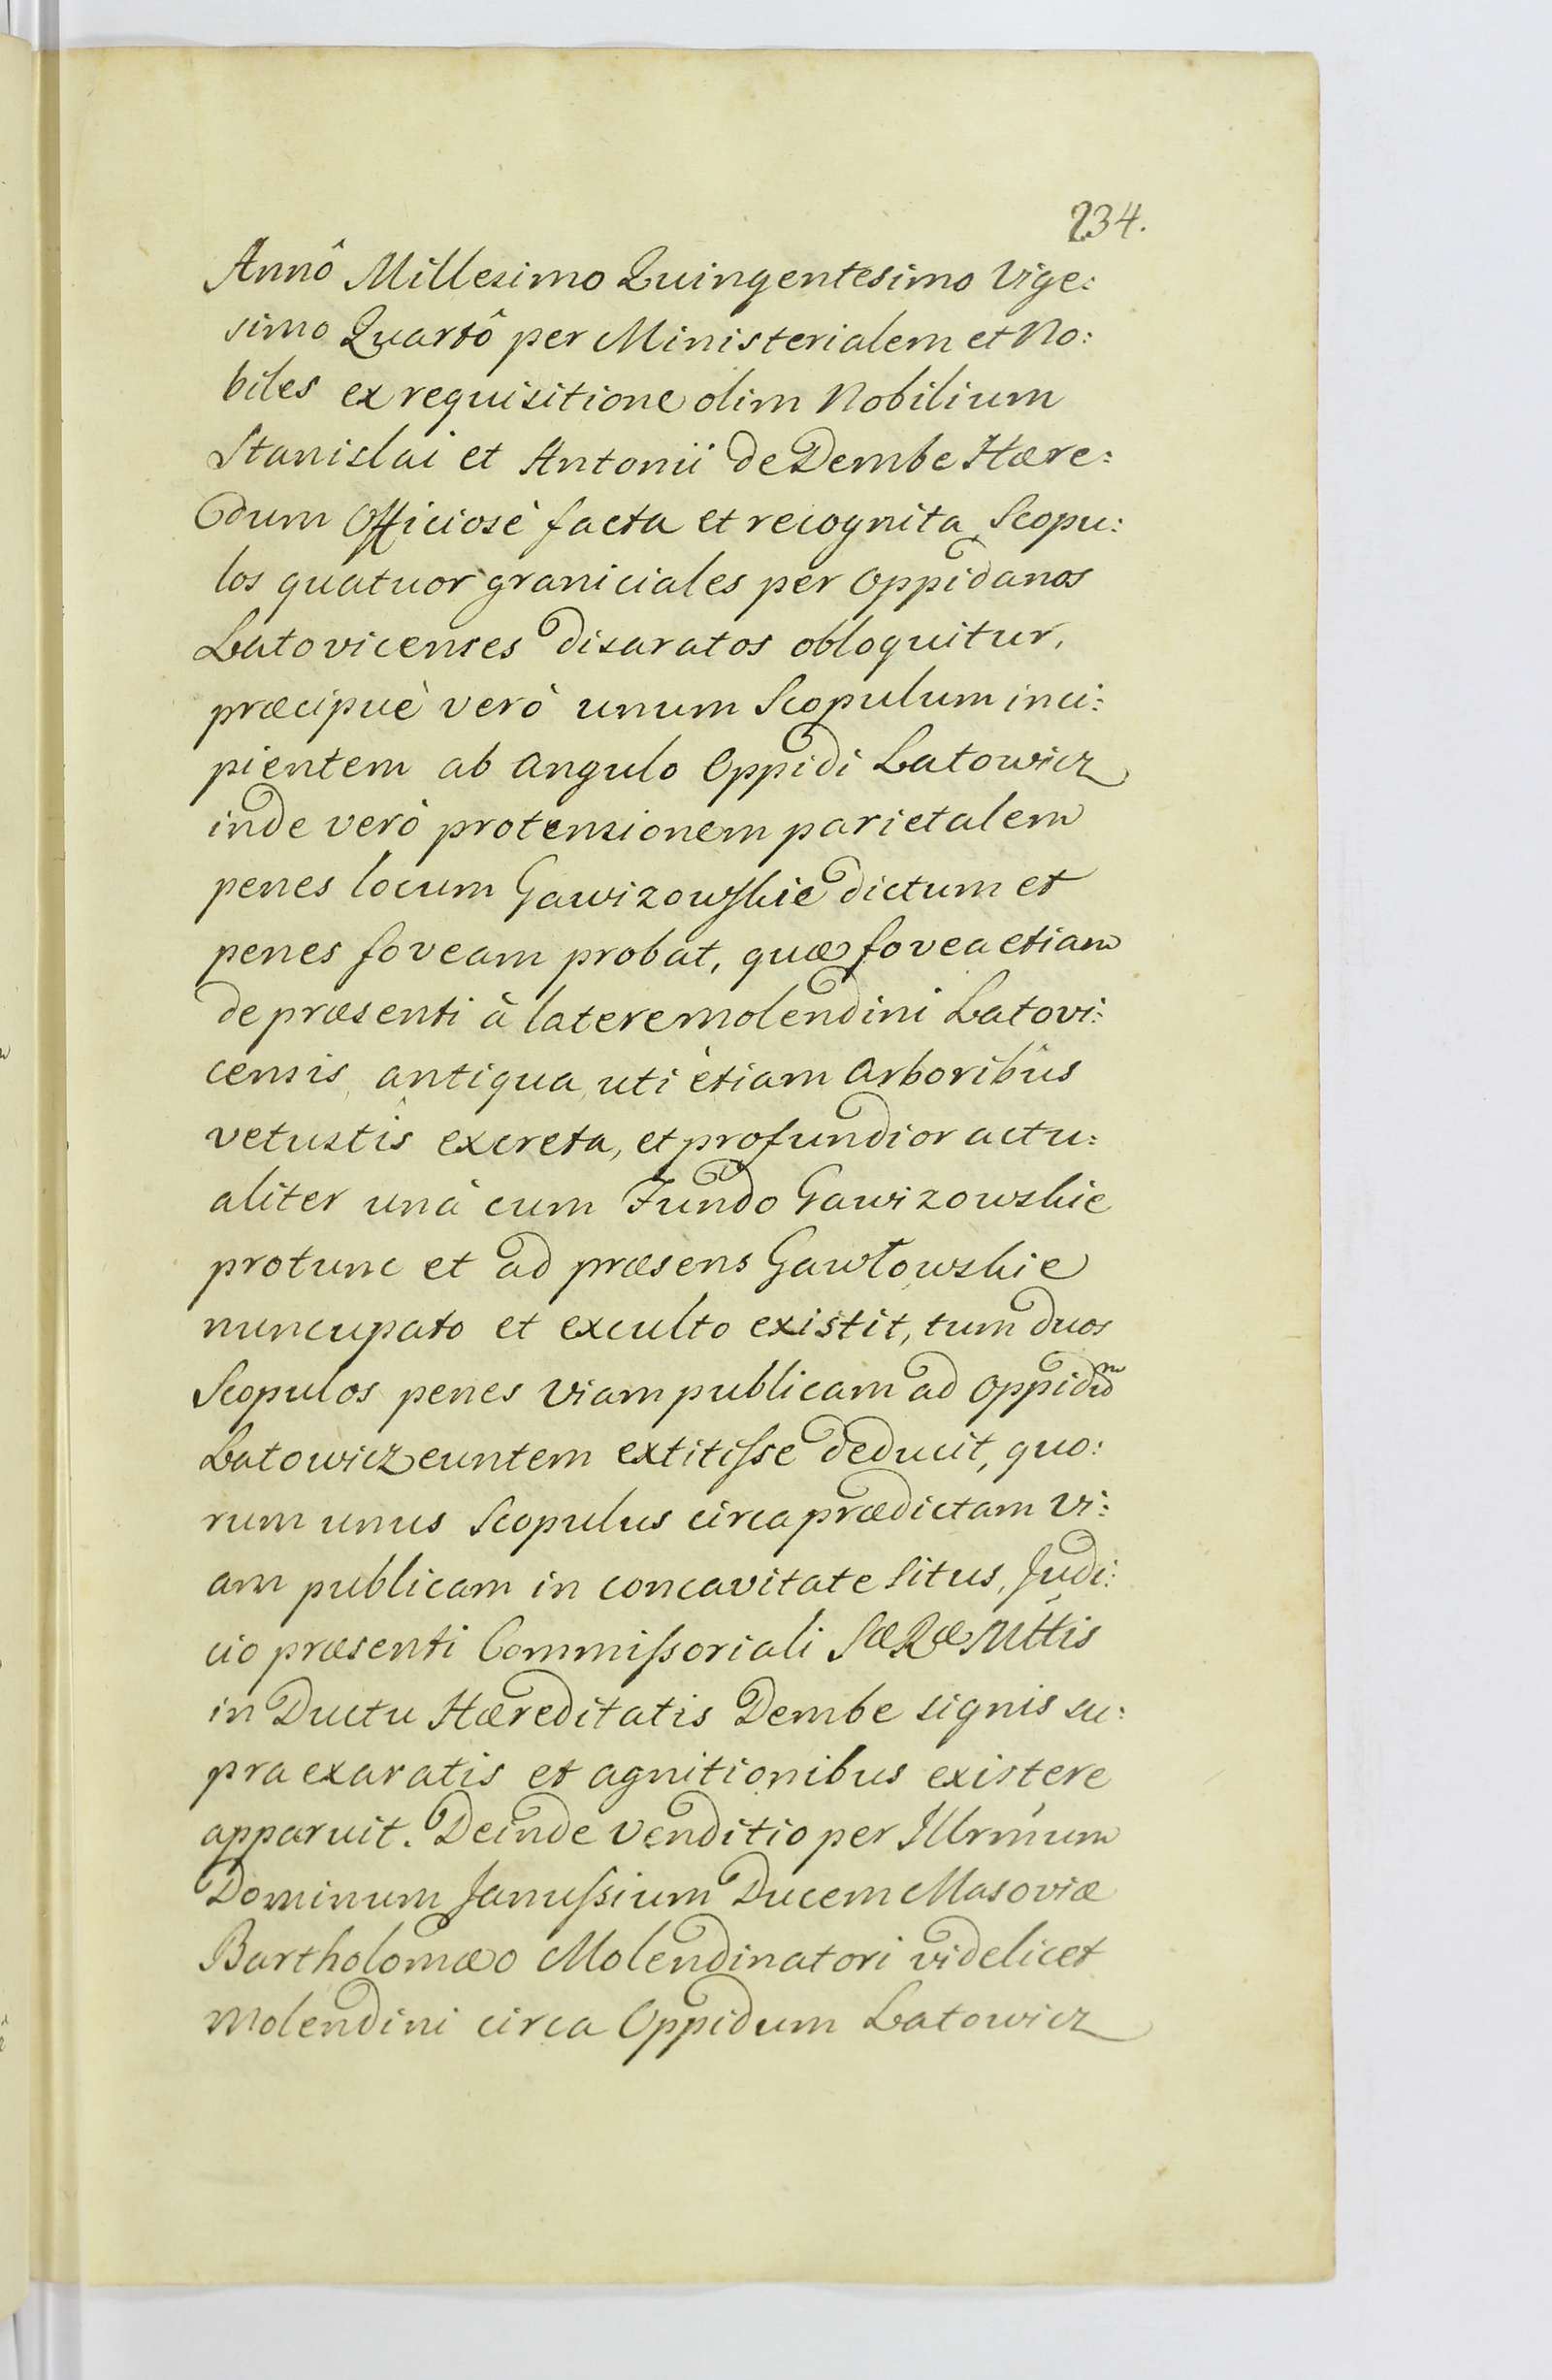 234.
Annô Millesimo Quingentesimo Vige:
simo Quartô per Ministerialem et No:
biles ex requisitione olim Nobilium
Stanislai et Antonii de Dembe Hære:
dum Officiosè facta et recognita, Scopu:
los quatuor graniciales per Oppidanos
Latovicenses disaratos obloquitur,
præcipuè verò unum Scopulum inci:
pientem ab angulo Oppidi Latowicz
inde verò protensionem parietalem
penes locum Gawizowskie dictum et
penes foveam probat, quæ fovea etiam
de præsenti à latere molendini Latovi:
censis, antiqua, uti etiam arboribûs
vetustîs excreta, et profundior actu:
aliter unà cum Fundo Gawizowskie
protunc et ad præsens Gawłowskie
nuncupato et exculto existit, tum duos
Scopulos penes viam publicam ad Oppidũ
Latowicz euntem extitisse deducit, quo:
rum unus Scopulus circa prædictam vi:
am publicam in concavitate situs, Judi:
cio præsenti Commissoriali SæRæMttis
in Ductu Hæreditatis Dembe signis su:
pra exaratis et agnitionibus existere
apparuit. Deinde venditio per Illrmum
Dominum Janussium Ducem Masoviæ
Bartholomæo Molendinatori videlicet
Molendini circa Oppidum Latowicz